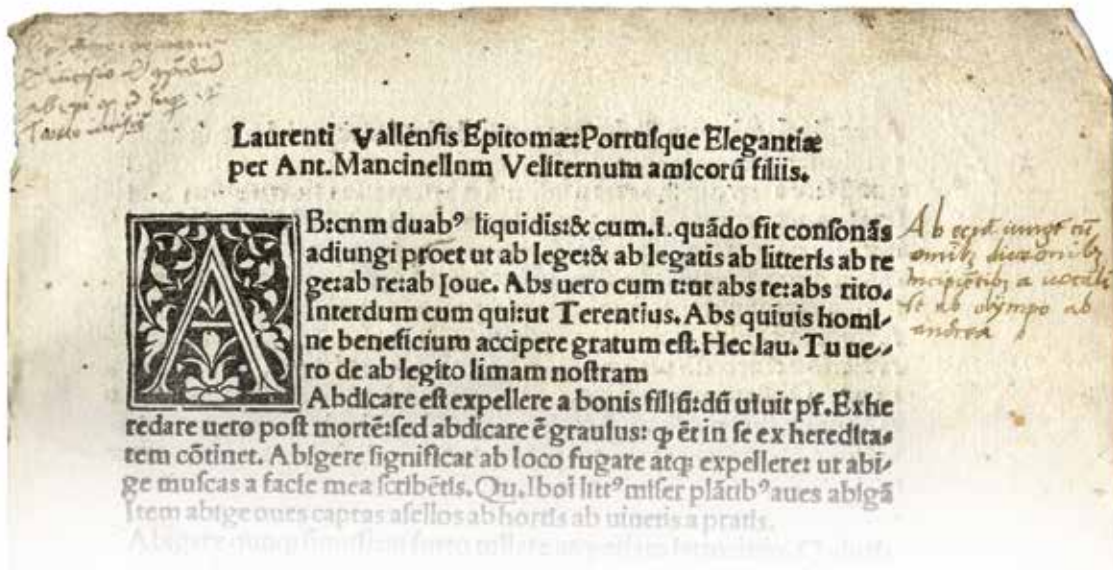 Laurenti Vallensis Epitomæ: Portusque Elegantiæ
per Ant. Mancinellum Veliternum amicorũ filiis.
AB: cum duabꝰ liquidis: & cum .i. quãdo fit consonãs
adiungi proet ut ab lege: & ab legatis ab litteris ab re
ge: ab re: ab Ioue. Abs uero cum t: ut abs te: abs tito.
Interdum cum qui: ut Terentius. Abs quiuis homi-
ne beneficium accipere gratum est. Hec lau. Tu ue-
ro de ab legito limam nostram
Abdicare est expellere a bonis filiũ: dũ uiuit pr̃. Exhe
redare uero post mortẽ: sed abdicare ẽ grauius: ꝙ ẽt in se ex heredita-
tem cõtinet. Abigere significat ab loco fugare atqꝫ expellere: ut abi-
ge muscas a facie mea scribẽtis. Qu. Iboi littꝰ miser plãtibꝰ aues abigã
Item abige oues capras asellos ab hortis ab uineis a pratis.
Ab iungit cũ
omibꝫ dictionibꝫ
incipiẽtibꝫ a uocali
ab olympo ab
andrea